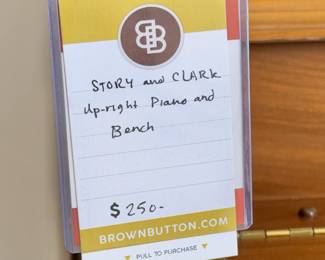 BB
STORY and CLARK
Up-right Piano and
Bench
$250-
BROWNBUTTON.COM
PULL TO PURCHASE